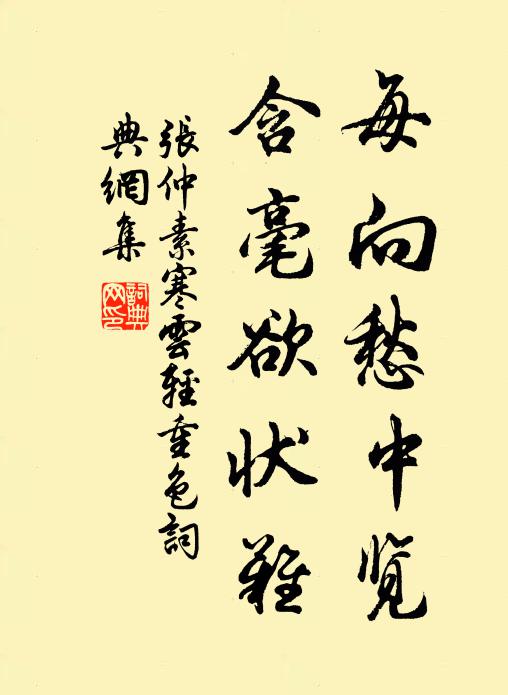 每向愁中览
含毫欲状難
張仲素寒雲輕重色詞
典網集
詞典
网印